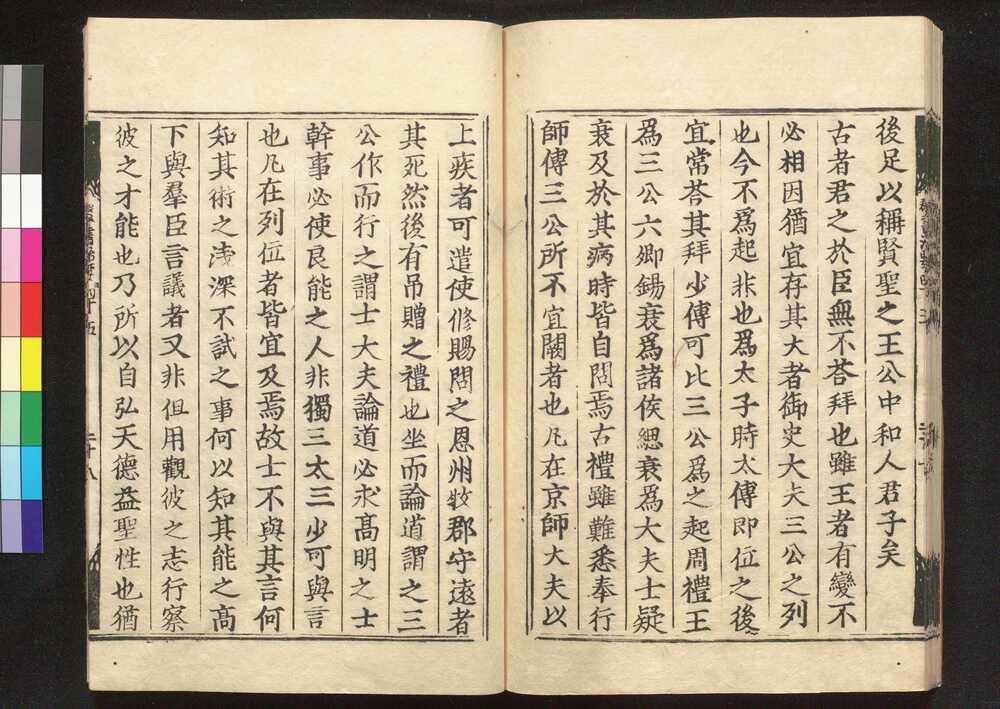 後足以稱賢聖之王公中和人君子矣
古者君之於臣無不荅拜也雖王者有變不
必相因猶宜存其大者御史大夫三公之列
也今不爲起非也爲太子時太傅即位之後
宜常荅其拜少傅可比三公爲之起周禮王
爲三公六卿錫衰爲諸侯緦衰爲大夫士疑
衰及於其病時皆自問焉古禮雖難悉奉行
師傅三公所不宜闕者也凡在京師大夫以
上疾者可遣使修賜問之恩州牧郡守遠者
其死然後有吊贈之禮也坐而論道謂之三
公作而行之謂士大夫論道必求高明之士
幹事必使良能之人非獨三太三少可與言
也凡在列位者皆宜及焉故士不與其言何
知其術之浅深不試之事何以知其能之高
下與羣臣言議者又非但用觀彼之志行察
彼之才能也乃所以自弘天德益聖性也猶